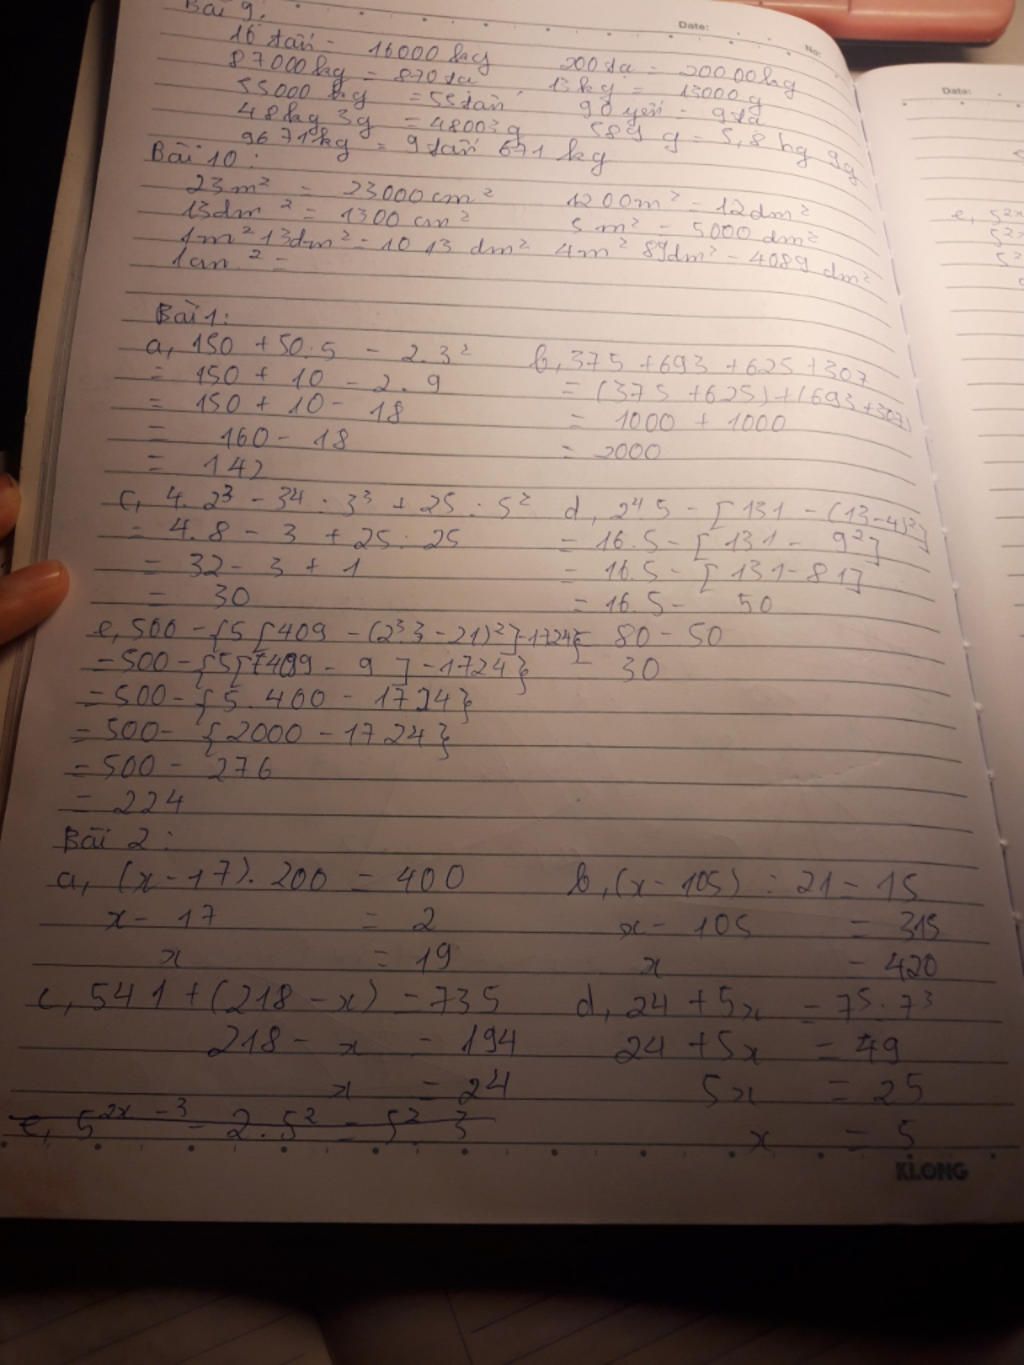 Bài 9:
Date:
No:
16 tấn = 16000 kg 200 tạ = 20000 kg
87000 kg = 870 tạ 13 kg = 13000 g
55000 kg = 55 tấn 90 yến = 9 tạ
48 kg 3g = 48003 g 589 g = 5,8 hg 9g
9671 kg = 9 tấn 671 kg
Bài 10:
23 m² = 23000 cm² 1200 m² = 12 dm²
13 dm² = 1300 cm² 5 m² = 5000 dm²
1m² 13dm² = 1013 dm² 4m² 89dm² = 4089 dm²
² =
Bài 1:
a, 150 + 50 : 5 - 2.3² b, 375 + 693 + 625 + 307
= 150 + 10 - 2.9 = (375 + 625) + (693 + 307)
= 150 + 10 - 18 = 1000 + 1000
= 160 - 18 = 2000
= 142
c, 4.2³ - 3⁴ : 3³ + 25 : 5² d, 2⁴.5 - [131 - (13-4)²]
= 4.8 - 3 + 25 : 25 = 16.5 - [131 - 9²]
= 32 - 3 + 1 = 16.5 - [131 - 81]
= 30 = 16.5 - 50
e, 500 - {5[409 - (2³.3 - 21)²] - 1724} = 80 - 50
= 500 - {5[409 - 9] - 1724} = 30
= 500 - {5.400 - 1724}
= 500 - {2000 - 1724}
= 500 - 276
= 224
Bài 2:
a, (x - 17). 200 = 400 b, (x - 105) : 21 = 15
x - 17 = 2 x - 105 = 315
x = 19 x = 420
c, 541 + (218 - x) = 735 d, 24 + 5x = 7⁵ : 7³
218 - x = 194 24 + 5x = 49
x = 24 5x = 25
e, 5²ˣ⁻³ - 2.5² = 5².3 x = 5
KLONG
Date: